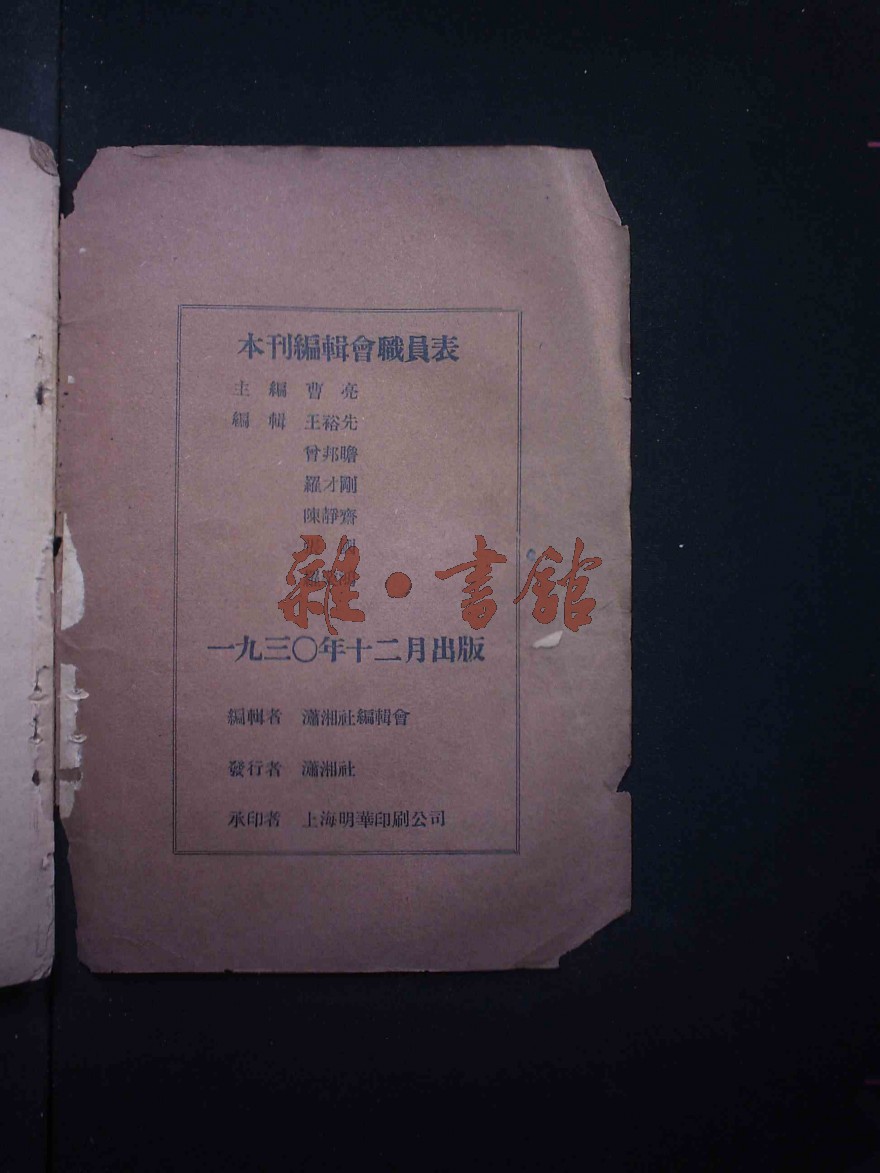 本刊編輯會職員表
主編 曹亮
編輯 王裕先
曾邦瞻
羅才剛
陳靜齋
雜·書館
一九三〇年十二月出版
編輯者 瀟湘社編輯會
發行者 瀟湘社
承印者 上海明華印刷公司